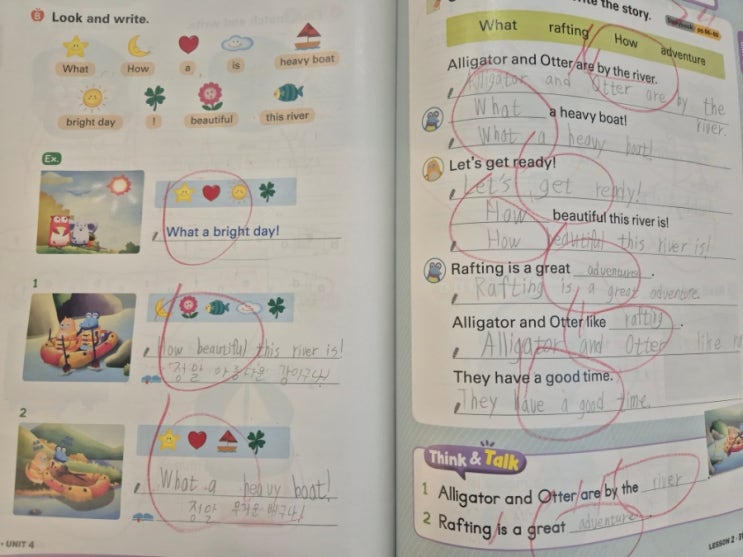 B Look and write.
What How a is heavy boat
bright day ! beautiful this river
Ex.
What a bright day!
1
How beautiful this river is!
정말 아름다운 강이구나!
2
What a heavy boat!
정말 무거운 배구나!
UNIT 4
the story.
What rafting How adventure
Alligator and Otter are by the river.
Alligator and Otter are by the
river.
What a heavy boat!
What a heavy boat!
Let's get ready!
Let's get ready!
How beautiful this river is!
How beautiful this river is!
Rafting is a great adventure.
Rafting is a great adventure.
Alligator and Otter like rafting.
Alligator and Otter like
They have a good time.
They have a good time.
Think & Talk
1 Alligator and Otter are by the river
2 Rafting is a great adventure.
LESSON 2